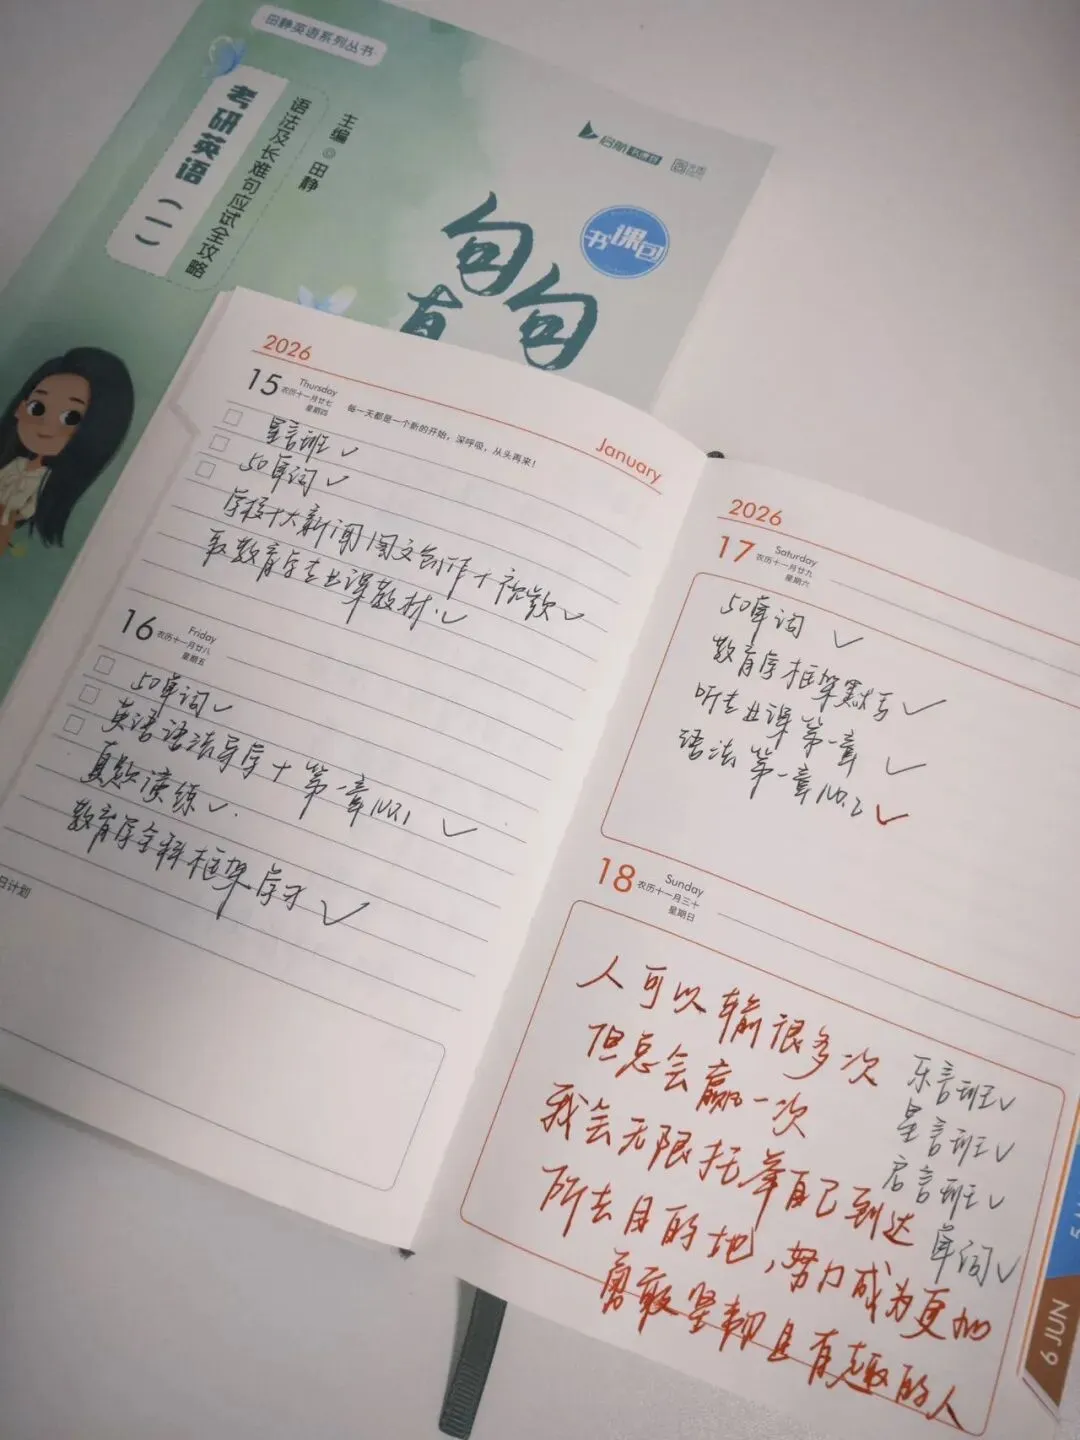 田静英语系列丛书
考研英语(一)
语法及长难句应试全攻略
主编 田静
启航
书课包
句句
真
2026
January
15
Thursday
农历十一月廿七
星期四
每一天都是一个新的开始，深呼吸，从头再来！
星言班 ✓
50单词 ✓
学校十大新闻图文创作+视频 ✓
取教育学专业课教材. ✓
16
Friday
农历十一月廿八
星期五
50单词 ✓
英语语法导学+第一章No.1 ✓
真题读练 ✓.
教育学全科框架学习 ✓
日计划
2026
17
Saturday
农历十一月廿九
星期六
50单词 ✓
教育学框架默写 ✓
听专业课第一章 ✓
语法第一章No.2 ✓
18
Sunday
农历十一月三十
星期日
人可以输很多次
但总会赢一次
我会无限托举自己到达
所去目的地，努力成为更加
勇敢坚韧且有趣的人
乐言班 ✓
星言班 ✓
启言班 ✓
单词 ✓
6 JUN